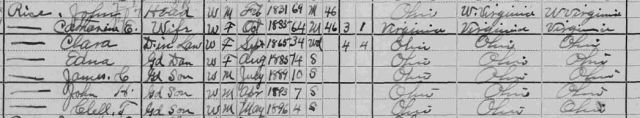 Rice John Head W M Feb 1831 69 M 46 Ohio W. Virginia W. Virginia
— Catharine E. Wife W F Oct 1835 64 M 46 3 1 Virginia Virginia Virginia
— Clara D in Law W F Sept 1865 34 Wd 4 4 Ohio Ohio Ohio
— Edna Gd Dau W F Aug 1885 14 S Ohio Ohio Ohio
— James C Gd Son W M July 1889 10 S Ohio Ohio Ohio
— John H. Gd Son W M Apr 1893 7 S Ohio Ohio Ohio
— Clell T. Gd Son W M May 1896 4 S Ohio Ohio Ohio